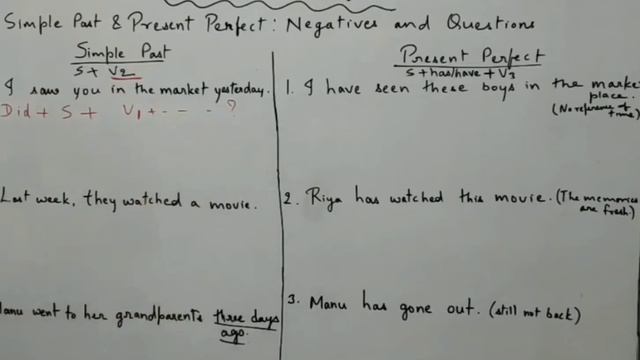 Simple Past & Present Perfect: Negatives and Questions
Simple Past
S + V2
I saw you in the market yesterday.
Did + S + V1 + - - - ?
Last week, they watched a movie.
Manu went to her grandparents three days
ago.
Present Perfect
S + has/have + V3
1. I have seen these boys in the market
place.
(No reference of
time)
2. Riya has watched this movie. (The memories
are fresh)
3. Manu has gone out. (still not back)